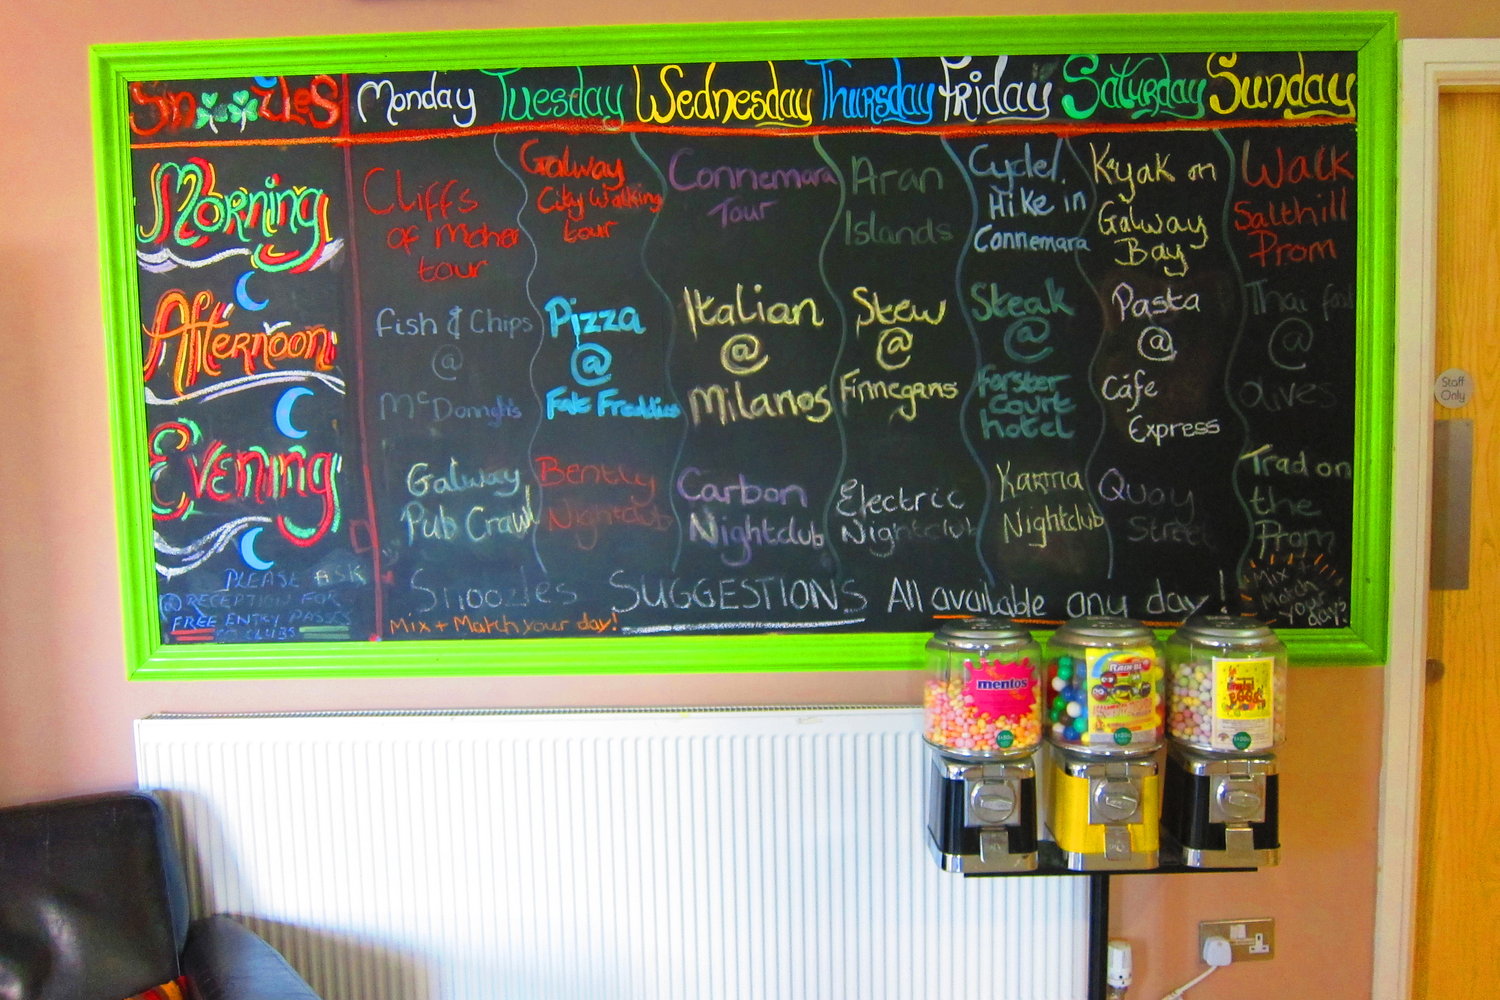 Snoozles Monday Tuesday Wednesday Thursday Friday Saturday Sunday
Morning
Cliffs
of Moher
tour
Galway
City Walking
tour
Connemara
Tour
Aran
Islands
Cycle/
Hike in
Connemara
Kyak on
Galway
Bay
Walk
Salthill
Prom
Afternoon
Fish & Chips
@
McDonagh's
Pizza
@
Fat Freddies
Italian
@
Milanos
Stew
@
Finnegans
Steak
@
Forster
Court
hotel
Pasta
@
Cáfe
Express
Thai food
@
olives
Evening
Galway
Pub Crawl
Bently
Nightclub
Carbon
Nightclub
Electric
Nightclub
Karma
Nightclub
Quay
Street
Trad on
the
Prom
PLEASE ASK
@ RECEPTION FOR
FREE ENTRY PASSES
TO CLUBS
Snoozles SUGGESTIONS All available any day!
Mix + Match your day!
Mix +
Match
your
days!
Staff
Only
mentos